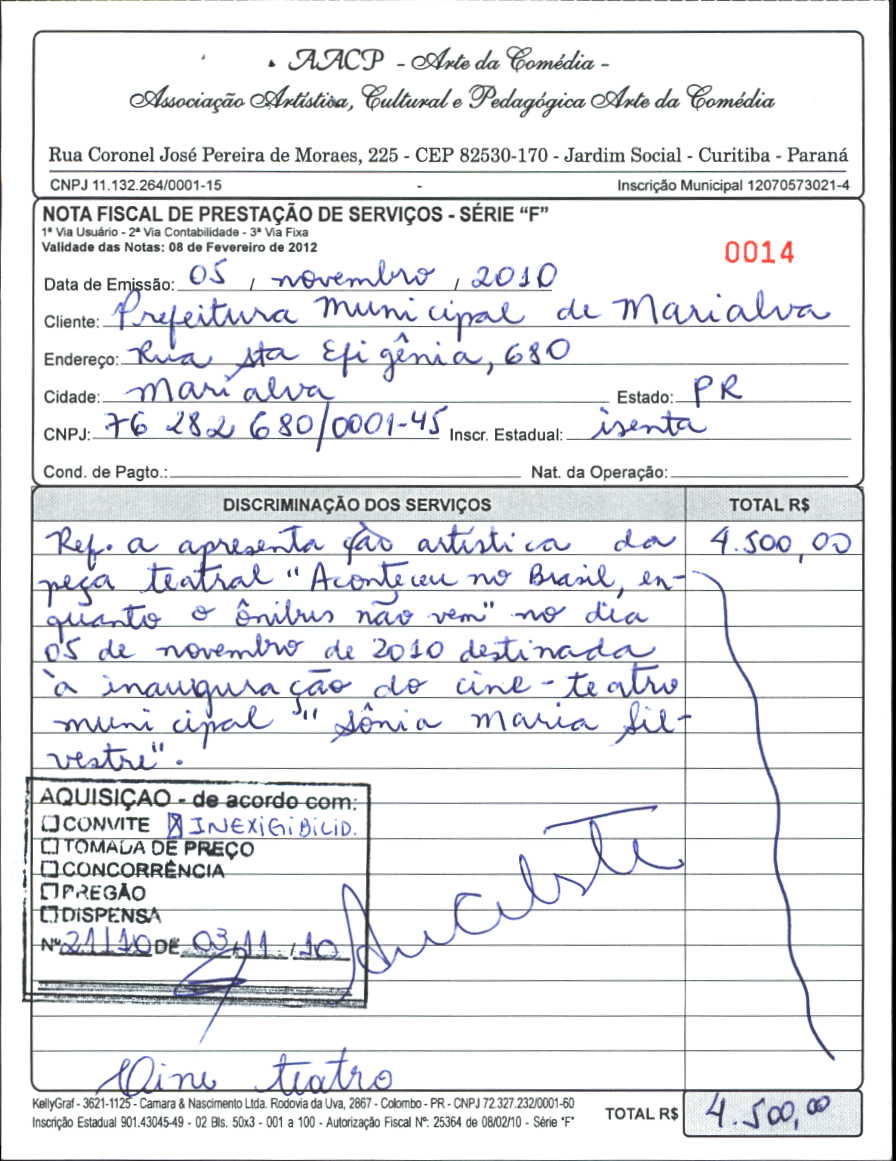 AACP - Arte da Comédia -
Associação Artística, Cultural e Pedagógica Arte da Comédia
Rua Coronel José Pereira de Moraes, 225 - CEP 82530-170 - Jardim Social - Curitiba - Paraná
CNPJ 11.132.264/0001-15 - Inscrição Municipal 12070573021-4
NOTA FISCAL DE PRESTAÇÃO DE SERVIÇOS - SÉRIE “F”
1ª Via Usuário - 2ª Via Contabilidade - 3ª Via Fixa
Validade das Notas: 08 de Fevereiro de 2012
0014
Data de Emissão: 05 / novembro / 2010
Cliente: Prefeitura municipal de Marialva
Endereço: Rua Sta Efigênia, 680
Cidade: Marialva Estado: PR
CNPJ: 76 282 680/0001-45 Inscr. Estadual: isenta
Cond. de Pagto.: Nat. da Operação:
DISCRIMINAÇÃO DOS SERVIÇOS TOTAL R$
Ref. a apresentação artística da 4.500,00
peça teatral "Aconteceu no Brasil, en-
quanto o ônibus não vem" no dia
05 de novembro de 2010 destinada
à inauguração do cine-teatro
municipal "Sônia Maria Sil-
vestre".
AQUISIÇÃO - de acordo com:
CONVITE INEXIGIBILID.
TOMADA DE PREÇO
CONCORRÊNCIA
PREGÃO
DISPENSA
Nº 21/10 DE 03/11/10
Cine teatro
KellyGraf - 3621-1125 - Camara & Nascimento Ltda. Rodovia da Uva, 2867 - Colombo - PR - CNPJ 72.327.232/0001-60
Inscrição Estadual 901.43045-49 - 02 Bls. 50x3 - 001 a 100 - Autorização Fiscal Nº: 25364 de 08/02/10 - Série “F”
TOTAL R$ 4.500,00